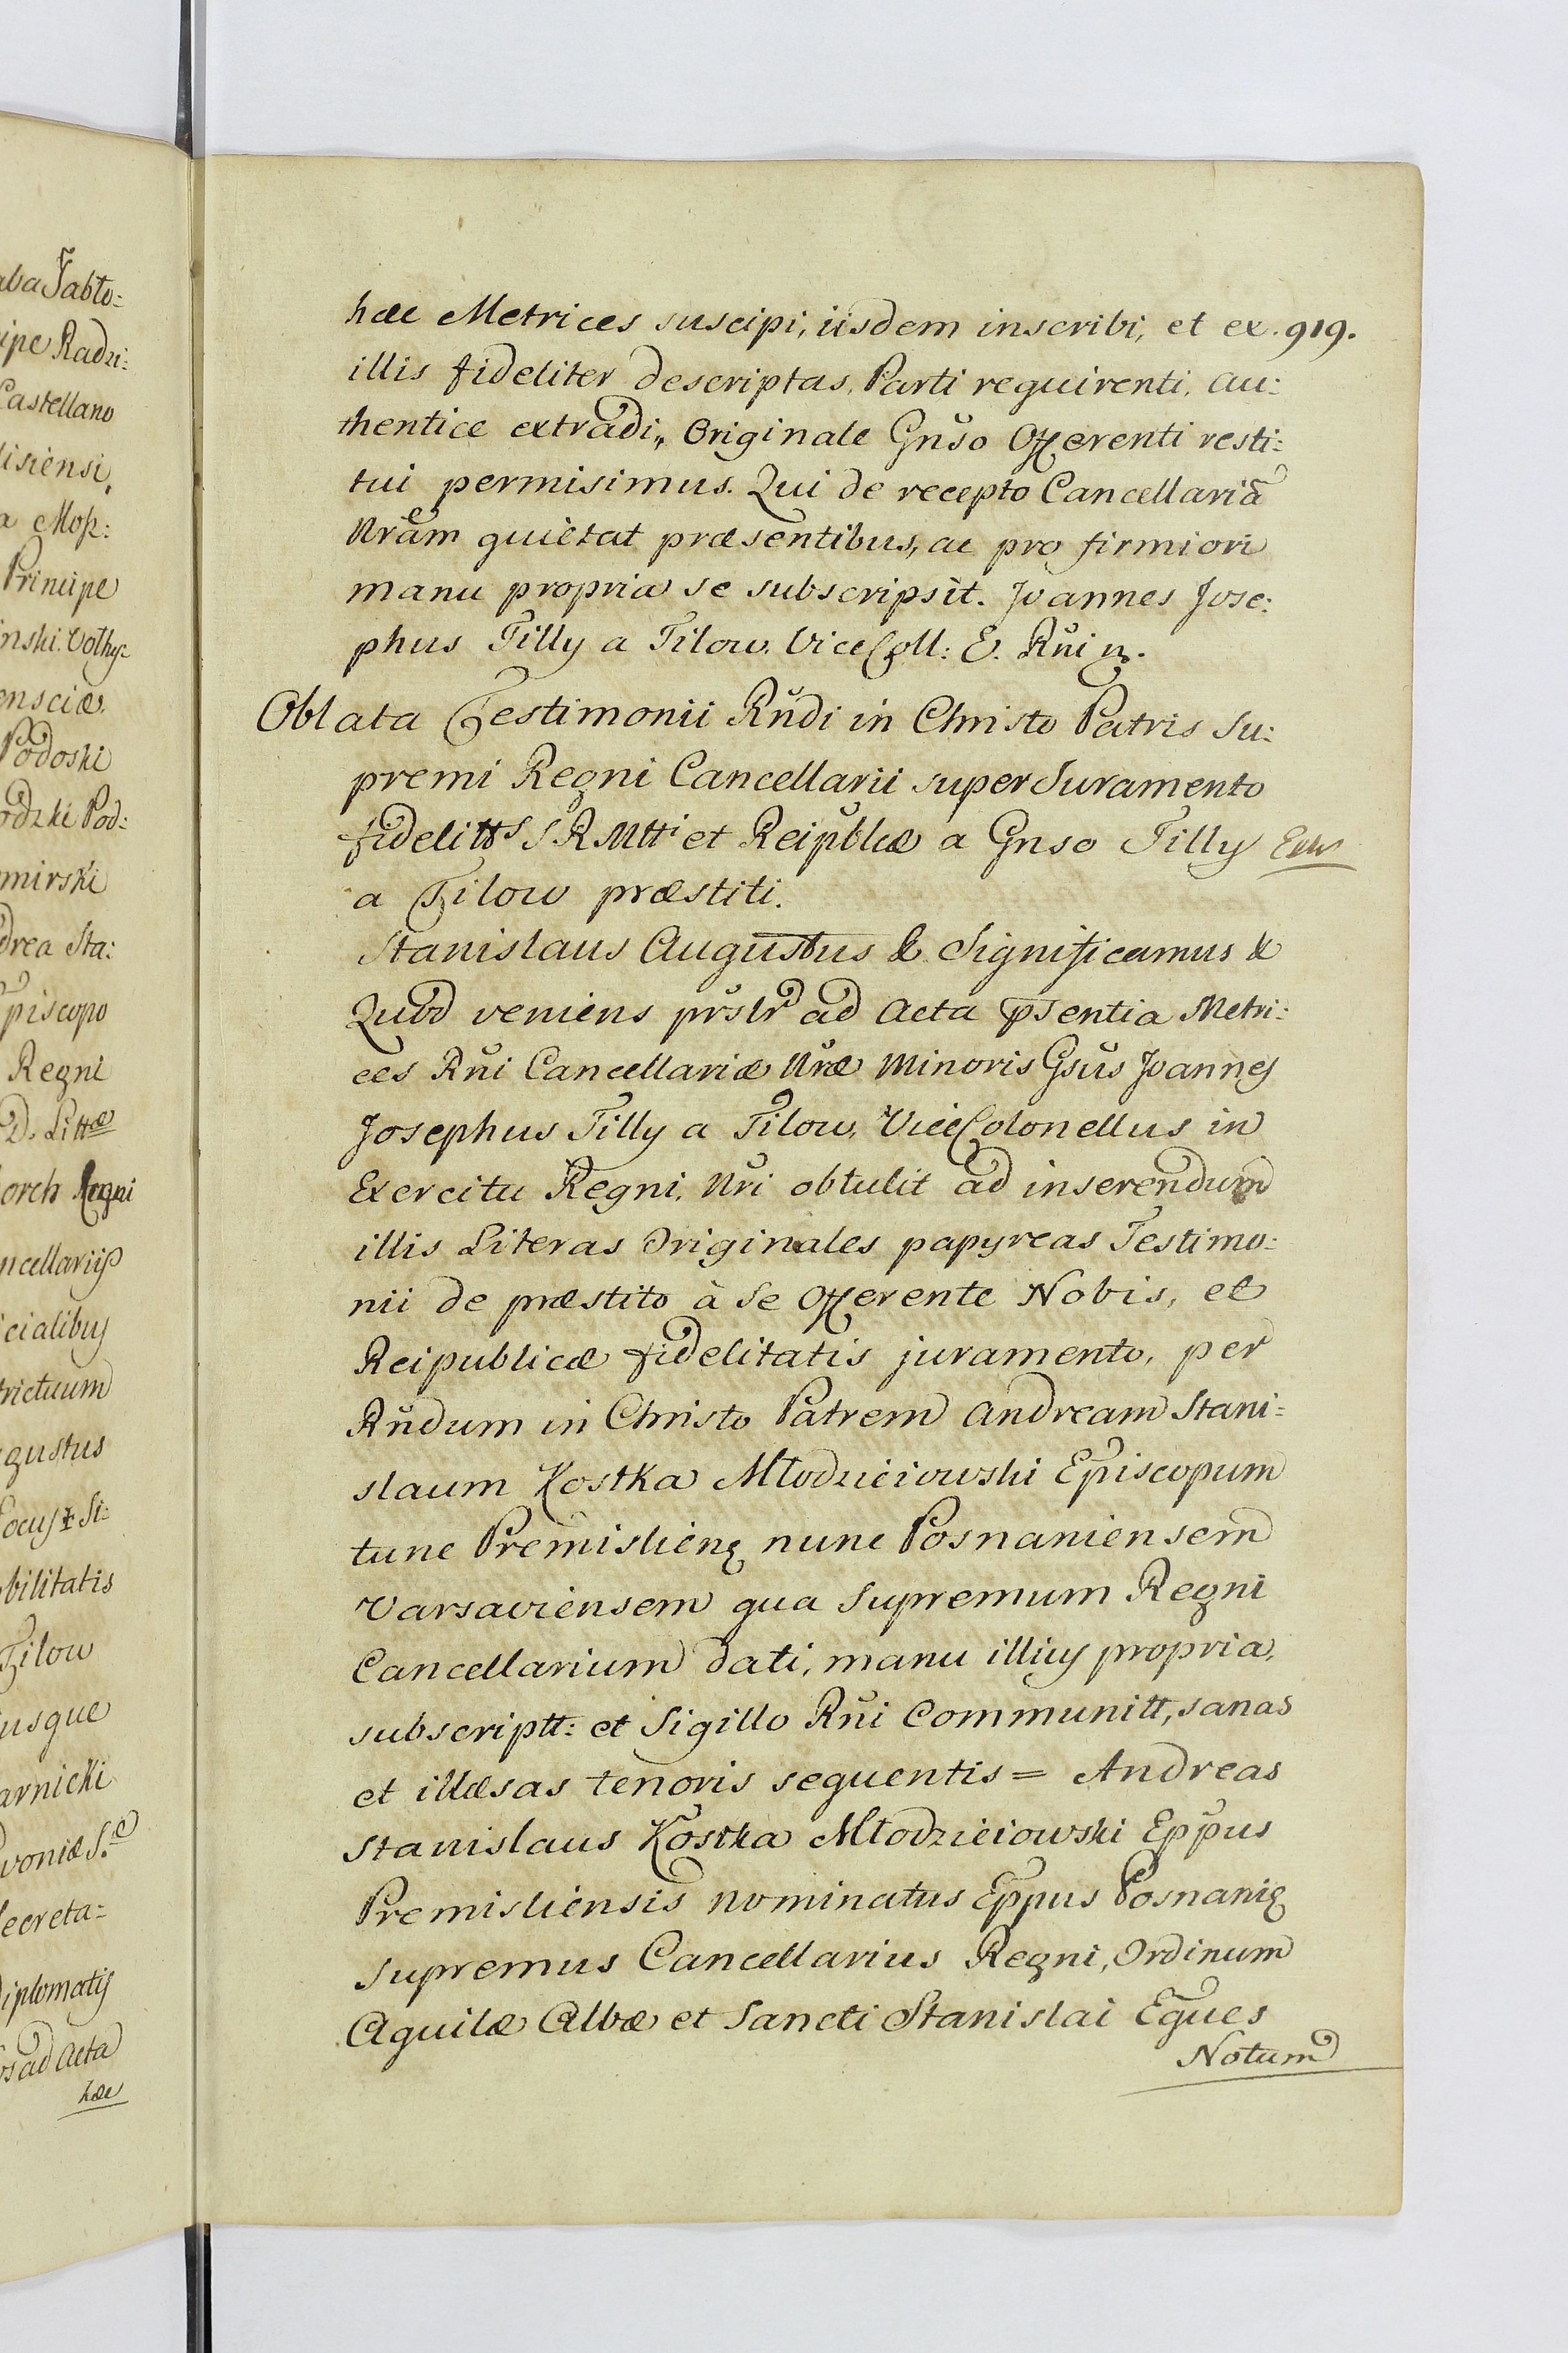 aba Jabło:
ipe Radzi:
Castellano
lisiensi,
a Mosz:
Principe
inski. Volhy:
ensciæ.
Podoski
odzki Pod:
mirski
drea Sta:
piscopo
Regni
D. Littæ
orch Regni
ncellariis
icialibus
trictuum
gustus
Locus Si:
bilitatis
Tilow
usque
arnicki
voniæ S.
ecreta:
Diplomatis
os ad Acta
hæc
hæc Metrices suscipi, iisdem inscribi, et ex. 919.
illis fideliter descriptas, Parti requirenti, au:
thentice extradi,, Originale Gnso Offerenti resti:
tui permisimus. Qui de recepto Cancellariã
Nram quietat præsentibus, ac pro firmiori
manu propria se subscripsit. Joannes Jose:
phus Tilly a Tilow. ViceColl: E. Rni m.
Oblata Testimonii Rndi in Christo Patris Su:
premi Regni Cancellarii super Juramento
fidelitts S. R. Mtti et Reipblicæ a Gnso Tilly
a Tilow præstiti.
Stanislaus Augustus & Significamus &
Quod veniens prslr ad Acta psentia Metri:
ces Rni Cancellariæ Nræ Minoris Gsus Joannes
Josephus Tilly a Tilow, ViceColonellus in
Exercitu Regni, Nri obtulit ad inserendum
illis Literas Originales papyreas Testimo:
nii de præstito à Se Offerente Nobis, et
Reipublicæ fidelitatis juramento, per
Rndum in Christo Patrem Andream Stani:
slaum Kostka Młodzieiowski Episcopum
tunc Premislienq nunc Posnaniensem
Varsaviensem qua Supremum Regni
Cancellarium dati, manu illius propria,
subscriptt: et Sigillo Rni Communitt, sanas
et illæsas tenoris sequentis = Andreas
Stanislaus Kostka Młodzieiowski Eppus
Premisliensis nominatus Eppus Posnaniq
Supremus Cancellarius Regni, Ordinum
Aquilæ Albæ et Sancti Stanislai Eques
Notum